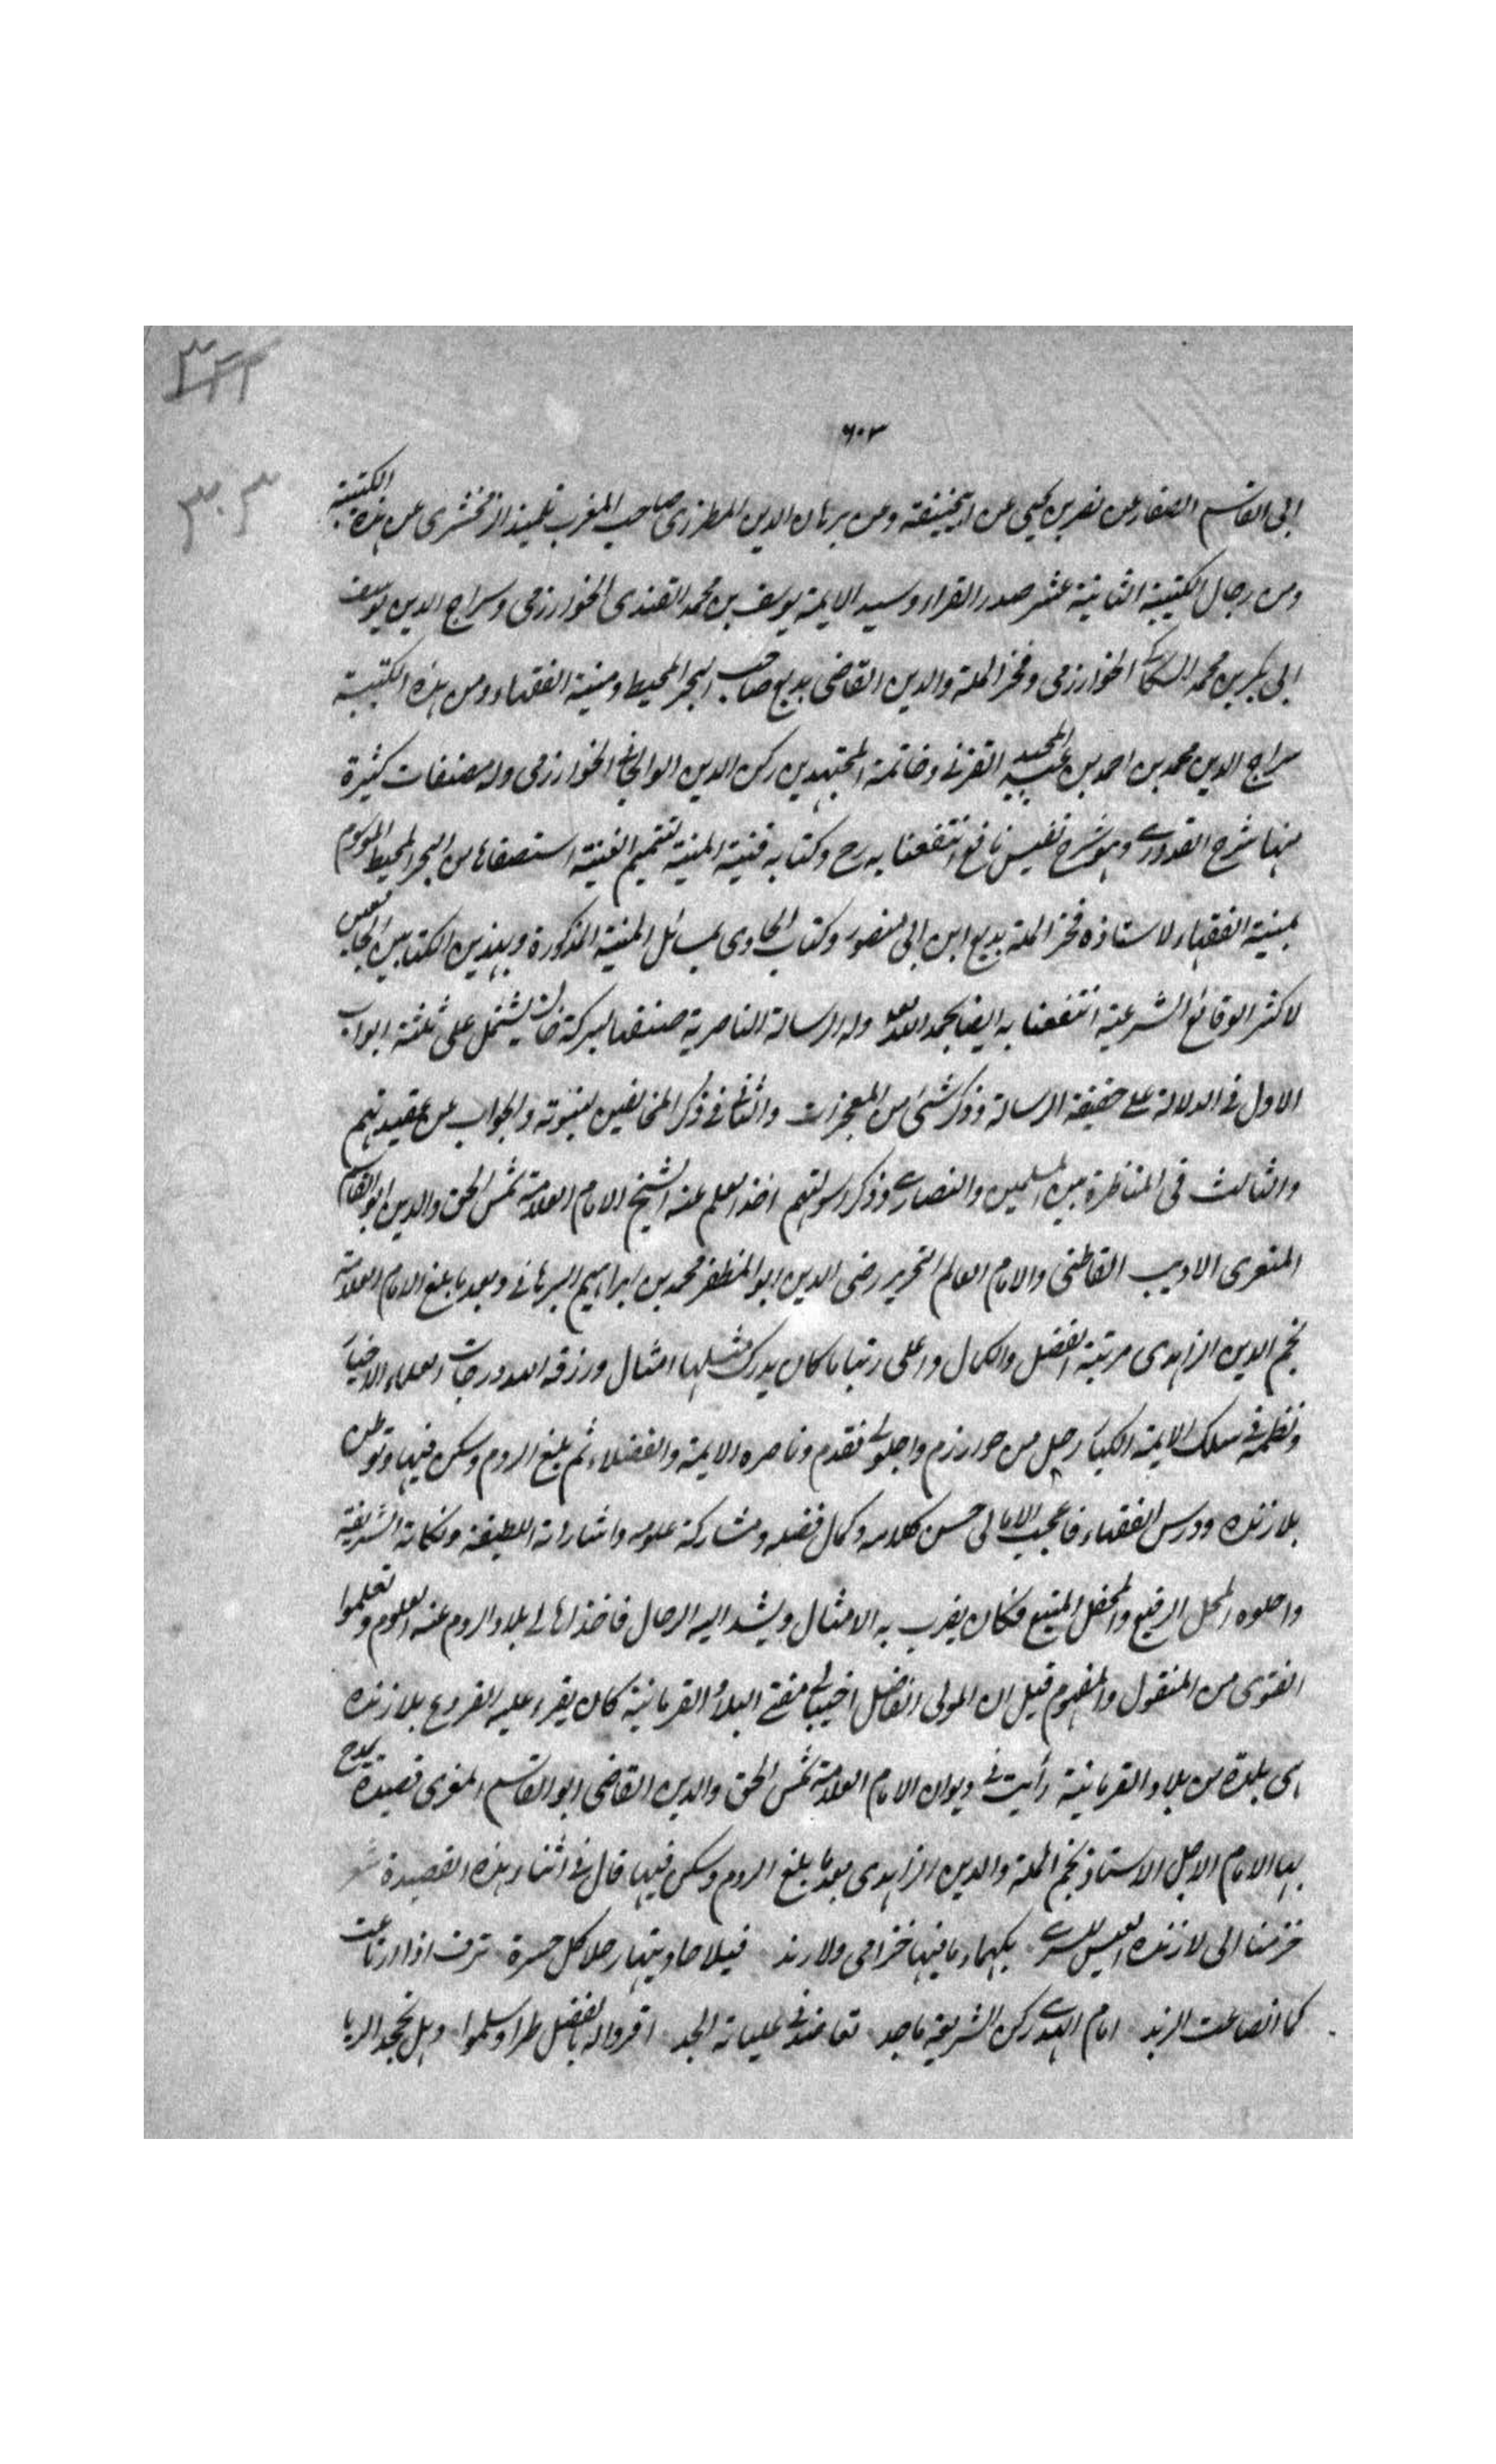 ٦٠٣
٣٠٣
ابى القاسم الصفار عن نصر بن يحيى عن ابيحنيفة وعن برهان الدين المطرزى صاحب المغرب تلميذ الزمخشرى عن هذه الكتيبة
ومن رجال الكتيبة الثانية عشر صدر القراء وسيد الايمة يوسف بن محمد القندى الخوارزمى وسراج الدين يوسف
ابى بكر بن محمد السكاكى الخوارزمى وفخر الملة والدين القاضى بديع صاحب البحر المحيط ومنية الفقهاء ومن هذه الكتيبة
سراج الدين محمد بن احمد بن عبد المجيد القزنى وخاتمة المجتهدين ركن الدين الوالجانى الخوارزمى وله مصنفات كثيرة
منها شرح القدورى وهو شرح نفيس نافع انتفعنا به رح وكتابه قنية المنية لتتميم الغنية استصفاها من البحر المحيط الموسوم
بمنية الفقهاء لاستاذه فخر الملة بديع ابن ابى منصور وكتاب الحاوى لمسائل المنية المذكورة وبهذين الكتابين الجامعين
لاكثر الوقائع الشرعية انتفعنا به ايضا بحمد الله وله الرسالة الناصرية صنفها لبركة خان يشتمل على ثلثة ابواب
الاول فى الدلالة على حقيقة الرسالة وذكر شئ من المعجزات والثانى فى ذكر المخالفين لنبوته والجواب عن عقيدتهم
والثالث فى المناظرة بين المسلمين والنصارى وذكر اسولتهم اخذ العلم عنه الشيخ الامام العلامة شمس الحق والدين ابو القاسم
المنورى الاديب القاطنى والامام العالم النحرير رضى الدين ابو المظفر محمد بن ابراهيم البرهانى وبعد ما بلغ الامام العلامة
نجم الدين الزاهدى مرتبة الفضل والكمال واعلى رتبا ما كان يدرك مثلها امثال ورزقه الله درجات العلماء الاخيار
ونظمه فى سلك الايمة الكبار رحل من خوارزم واجلوا تقدم وناصره الايمة والفضلاء ثم بلغ الروم وسكن فيها وتوطن
بلارنده ودرس الفقهاء فاعجب الاهالى حسن كلامه وكمال فضله ومشاركة علومه واشاراته اللطيفة ونكاته الشريفة
واحلوه المحل الرفيع والمحفل المنيع فكان يضرب به الامثال ويشد اليه الرحال فاخذ اهالى بلاد الروم عنه العلوم وتعلموا
الفتوى من المنقول والمفهوم قيل ان المولى الفاضل اخىبالى مفتى البلاد القرمانية كان يقرء عليه الفروع بلارنده
اى بلدة من بلاد القرمانية رأيت فى ديوان الامام العلامة شمس الحق والدين القاضى ابو القاسم المنورى قصيدة يمدح
بها الامام الاجل الاستاذ نجم الملة والدين الزاهدى بعد ما بلغ الروم وسكن فيها قال فى اثناء هذه القصيدة شعر
خرمنا الى لارنده العيس للسرى بيهماء ما فيها خزامى ولا رند فيلا حاديتها رحلا كل حسرة ترف اذا ارتاعت
كما انصاعت الربد امام الهدى ركن الشريعة ماجد تقاعد فى عليائه المجد اقروا له بالفضل طرا وسلموا وهل يجحد الريا